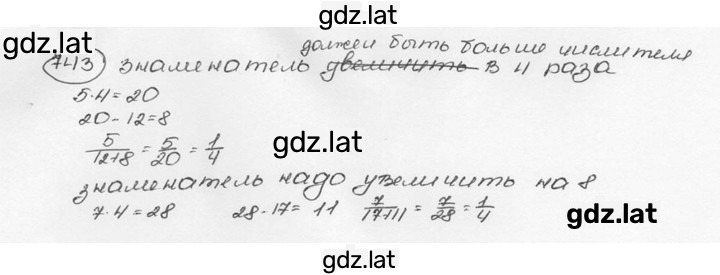 gdz.lat
должен быть больше числителя
743) знаменатель увеличить в 4 раза
gdz.lat
5·4=20
20-12=8
gdz.lat
5/12+8 = 5/20 = 1/4
знаменатель надо увеличить на 8
7·4=28 28-17= 11 7/17+11 = 7/28 = 1/4
gdz.lat
gdz.lat